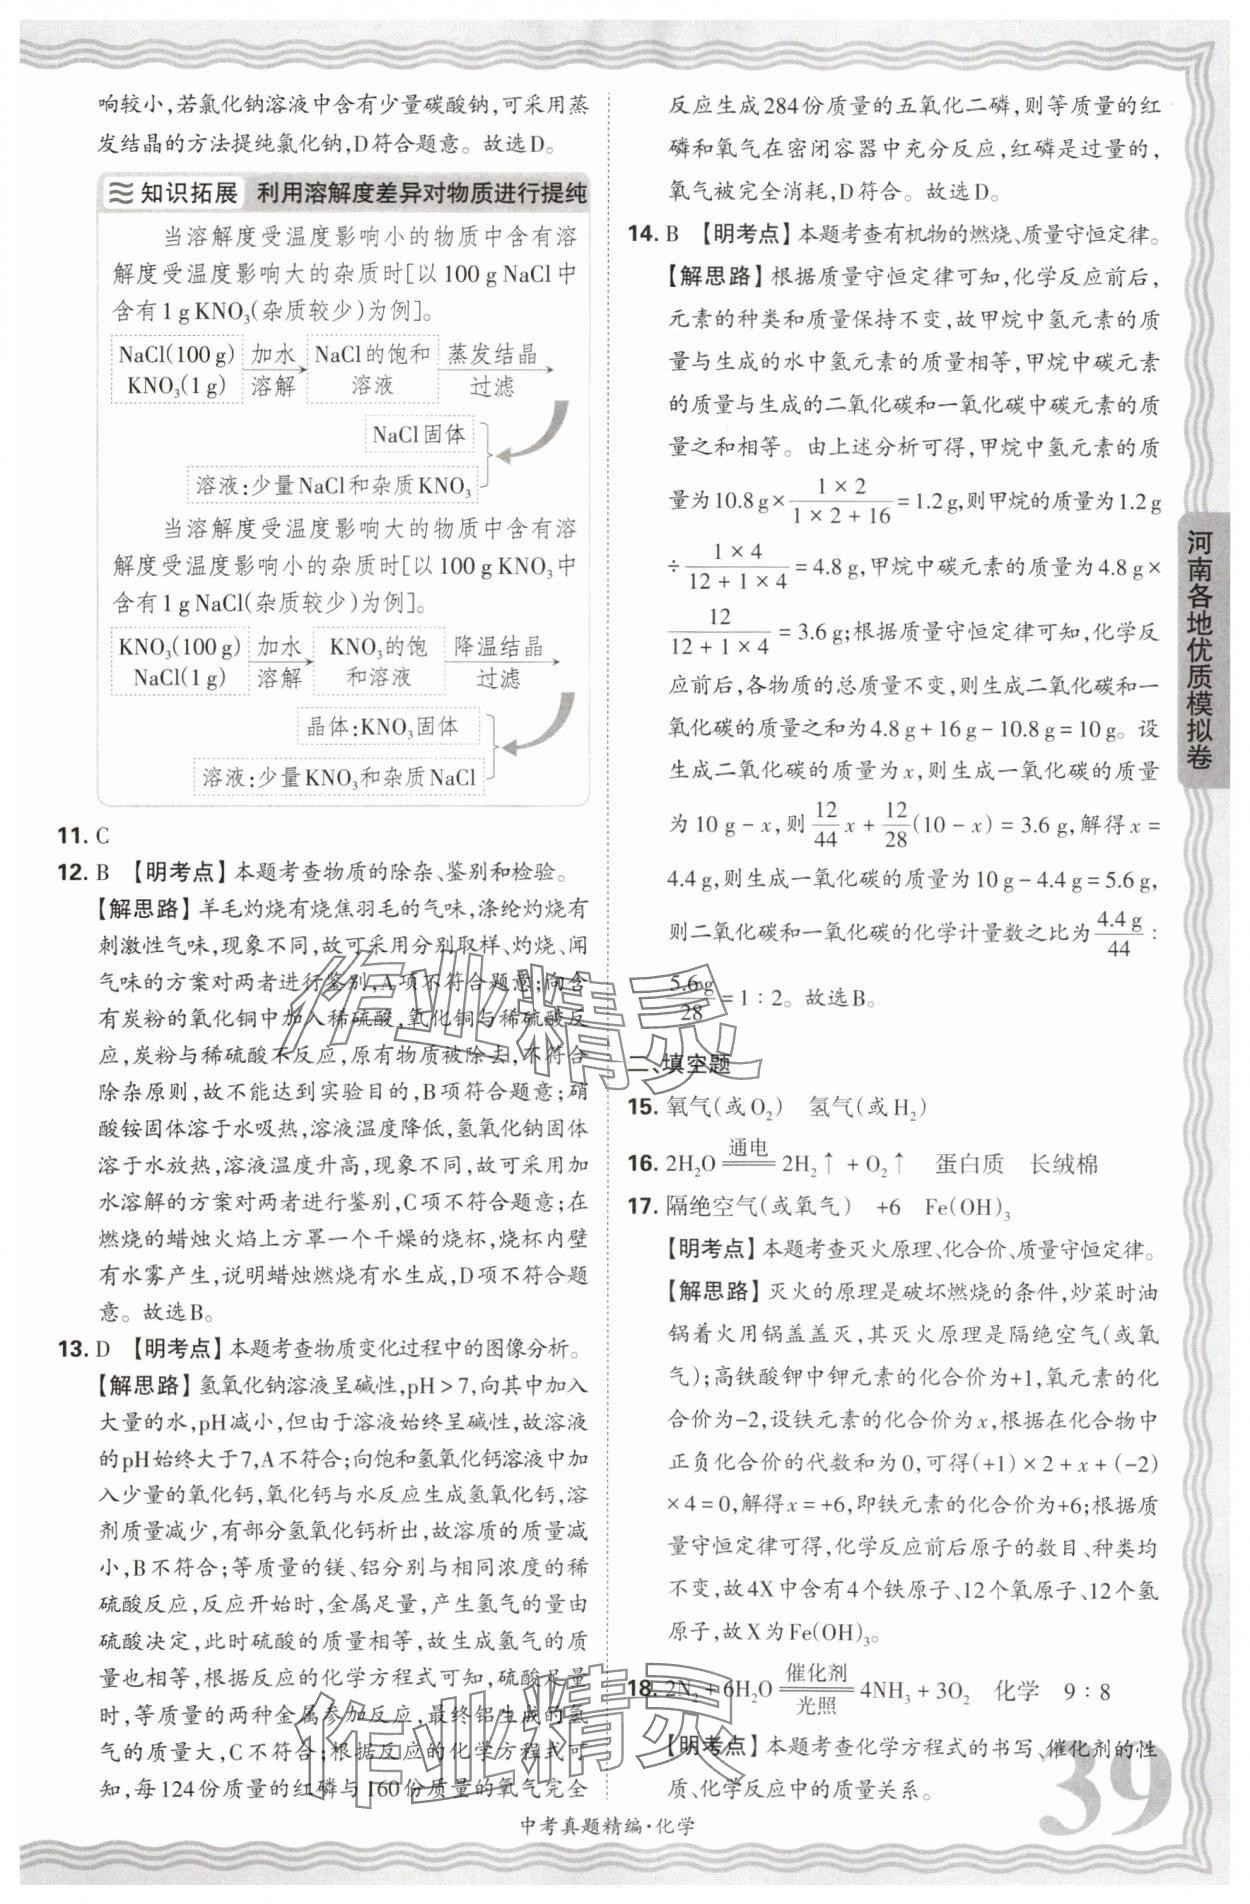 响较小,若氯化钠溶液中含有少量碳酸钠,可采用蒸
发结晶的方法提纯氯化钠,D符合题意。故选D。
知识拓展 利用溶解度差异对物质进行提纯
当溶解度受温度影响小的物质中含有溶
解度受温度影响大的杂质时[以100 g NaCl中
含有1 g KNO₃(杂质较少)为例]。
NaCl(100 g) 加水 NaCl的饱和 蒸发结晶
KNO₃(1 g) 溶解 溶液 过滤
NaCl固体
溶液:少量NaCl和杂质KNO₃
当溶解度受温度影响大的物质中含有溶
解度受温度影响小的杂质时[以100 g KNO₃中
含有1 g NaCl(杂质较少)为例]。
KNO₃(100 g) 加水 KNO₃的饱 降温结晶
NaCl(1 g) 溶解 和溶液 过滤
晶体:KNO₃固体
溶液:少量KNO₃和杂质NaCl
11. C
12. B 【明考点】本题考查物质的除杂、鉴别和检验。
【解思路】羊毛灼烧有烧焦羽毛的气味,涤纶灼烧有
刺激性气味,现象不同,故可采用分别取样、灼烧、闻
气味的方案对两者进行鉴别,A项不符合题意;向含
有炭粉的氧化铜中加入稀硫酸,氧化铜与稀硫酸反
应,炭粉与稀硫酸不反应,原有物质被除去,不符合
除杂原则,故不能达到实验目的,B项符合题意;硝
酸铵固体溶于水吸热,溶液温度降低,氢氧化钠固体
溶于水放热,溶液温度升高,现象不同,故可采用加
水溶解的方案对两者进行鉴别,C项不符合题意;在
燃烧的蜡烛火焰上方罩一个干燥的烧杯,烧杯内壁
有水雾产生,说明蜡烛燃烧有水生成,D项不符合题
意。故选B。
13. D 【明考点】本题考查物质变化过程中的图像分析。
【解思路】氢氧化钠溶液呈碱性,pH>7,向其中加入
大量的水,pH减小,但由于溶液始终呈碱性,故溶液
的pH始终大于7,A不符合;向饱和氢氧化钙溶液中加
入少量的氧化钙,氧化钙与水反应生成氢氧化钙,溶
剂质量减少,有部分氢氧化钙析出,故溶质的质量减
小,B不符合;等质量的镁、铝分别与相同浓度的稀
硫酸反应,反应开始时,金属足量,产生氢气的量由
硫酸决定,此时硫酸的质量相等,故生成氢气的质
量也相等,根据反应的化学方程式可知,硫酸足量
时,等质量的两种金属参加反应,最终铝生成的氢
气的质量大,C不符合;根据反应的化学方程式可
知,每124份质量的红磷与160份质量的氧气完全
反应生成284份质量的五氧化二磷,则等质量的红
磷和氧气在密闭容器中充分反应,红磷是过量的,
氧气被完全消耗,D符合。故选D。
14. B 【明考点】本题考查有机物的燃烧、质量守恒定律。
【解思路】根据质量守恒定律可知,化学反应前后,
元素的种类和质量保持不变,故甲烷中氢元素的质
量与生成的水中氢元素的质量相等,甲烷中碳元素
的质量与生成的二氧化碳和一氧化碳中碳元素的质
量之和相等。由上述分析可得,甲烷中氢元素的质
量为10.8 g×(1×2)/(1×2+16)=1.2 g,则甲烷的质量为1.2 g
÷(1×4)/(12+1×4)=4.8 g,甲烷中碳元素的质量为4.8 g×
12/(12+1×4)=3.6 g;根据质量守恒定律可知,化学反
应前后,各物质的总质量不变,则生成二氧化碳和一
氧化碳的质量之和为4.8 g+16 g-10.8 g=10 g。设
生成二氧化碳的质量为x,则生成一氧化碳的质量
为10 g-x,则12/44 x+12/28(10-x)=3.6 g,解得x=
4.4 g,则生成一氧化碳的质量为10 g-4.4 g=5.6 g,
则二氧化碳和一氧化碳的化学计量数之比为4.4 g/44:
5.6 g/28=1:2。故选B。
二、填空题
15. 氧气(或O₂) 氢气(或H₂)
16. 2H₂O 通电══ 2H₂↑+O₂↑ 蛋白质 长绒棉
17. 隔绝空气(或氧气) +6 Fe(OH)₃
【明考点】本题考查灭火原理、化合价、质量守恒定律。
【解思路】灭火的原理是破坏燃烧的条件,炒菜时油
锅着火用锅盖盖灭,其灭火原理是隔绝空气(或氧
气);高铁酸钾中钾元素的化合价为+1,氧元素的化
合价为-2,设铁元素的化合价为x,根据在化合物中
正负化合价的代数和为0,可得(+1)×2+x+(-2)
×4=0,解得x=+6,即铁元素的化合价为+6;根据质
量守恒定律可得,化学反应前后原子的数目、种类均
不变,故4X中含有4个铁原子、12个氧原子、12个氢
原子,故X为Fe(OH)₃。
18. 2N₂+6H₂O 催化剂══光照 4NH₃+3O₂ 化学 9:8
【明考点】本题考查化学方程式的书写、催化剂的性
质、化学反应中的质量关系。
河南各地优质模拟卷
中考真题精编·化学
39
作业精灵
作业精灵